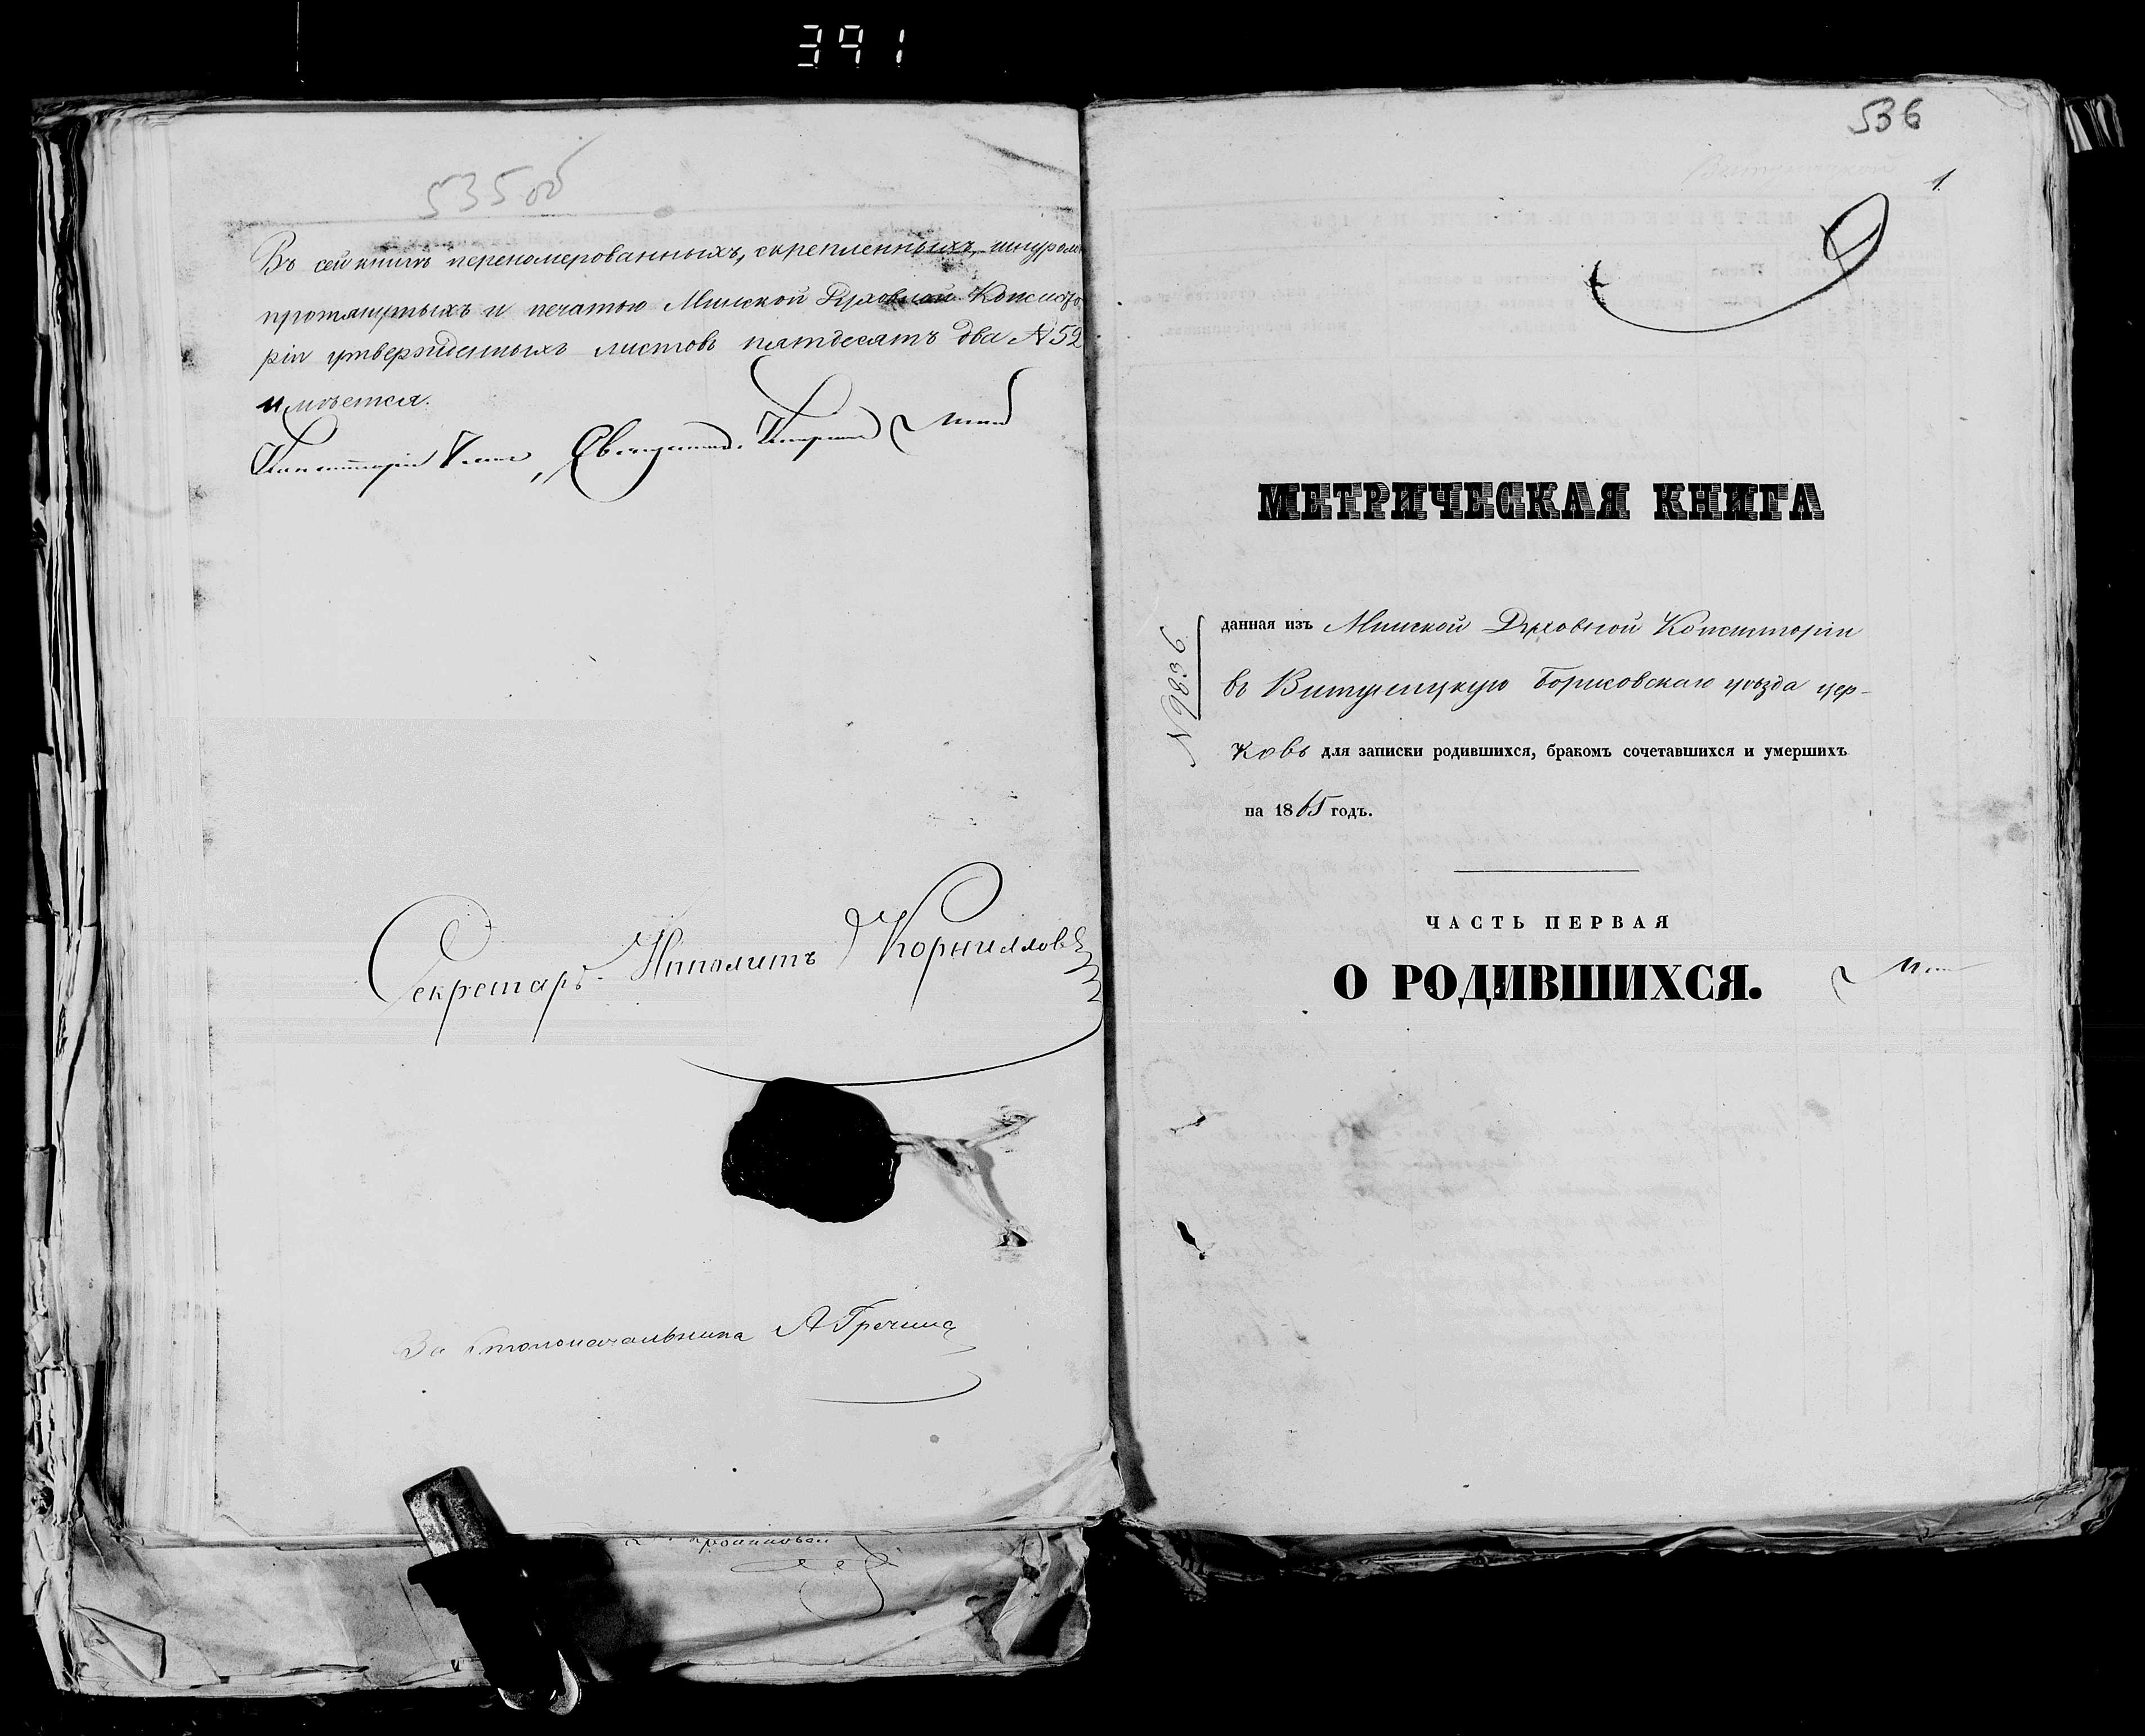 391
535об
Въ сей книгѣ перенумерованныхъ, скрепленныхъ, шнуромъ
протянутыхъ и печатью Минской Духовной Консисто
ріи утвержденныхъ листовъ пятдесятъ два №52
имѣется.
Консисторіи Членъ, Священникъ
Секретарь Ипполитъ Корниллов
За Столоначальника А Гречина
536
1.
9
МЕТРИЧЕСКАЯ КНИГА
№ 9836
данная изъ Минской Духовной Консисторіи
въ Витуницкую Борисовскаго уѣзда цер-
ковь для записки родившихся, бракомъ сочетавшихся и умершихъ
на 1865 годъ.
ЧАСТЬ ПЕРВАЯ
О РОДИВШИХСЯ.